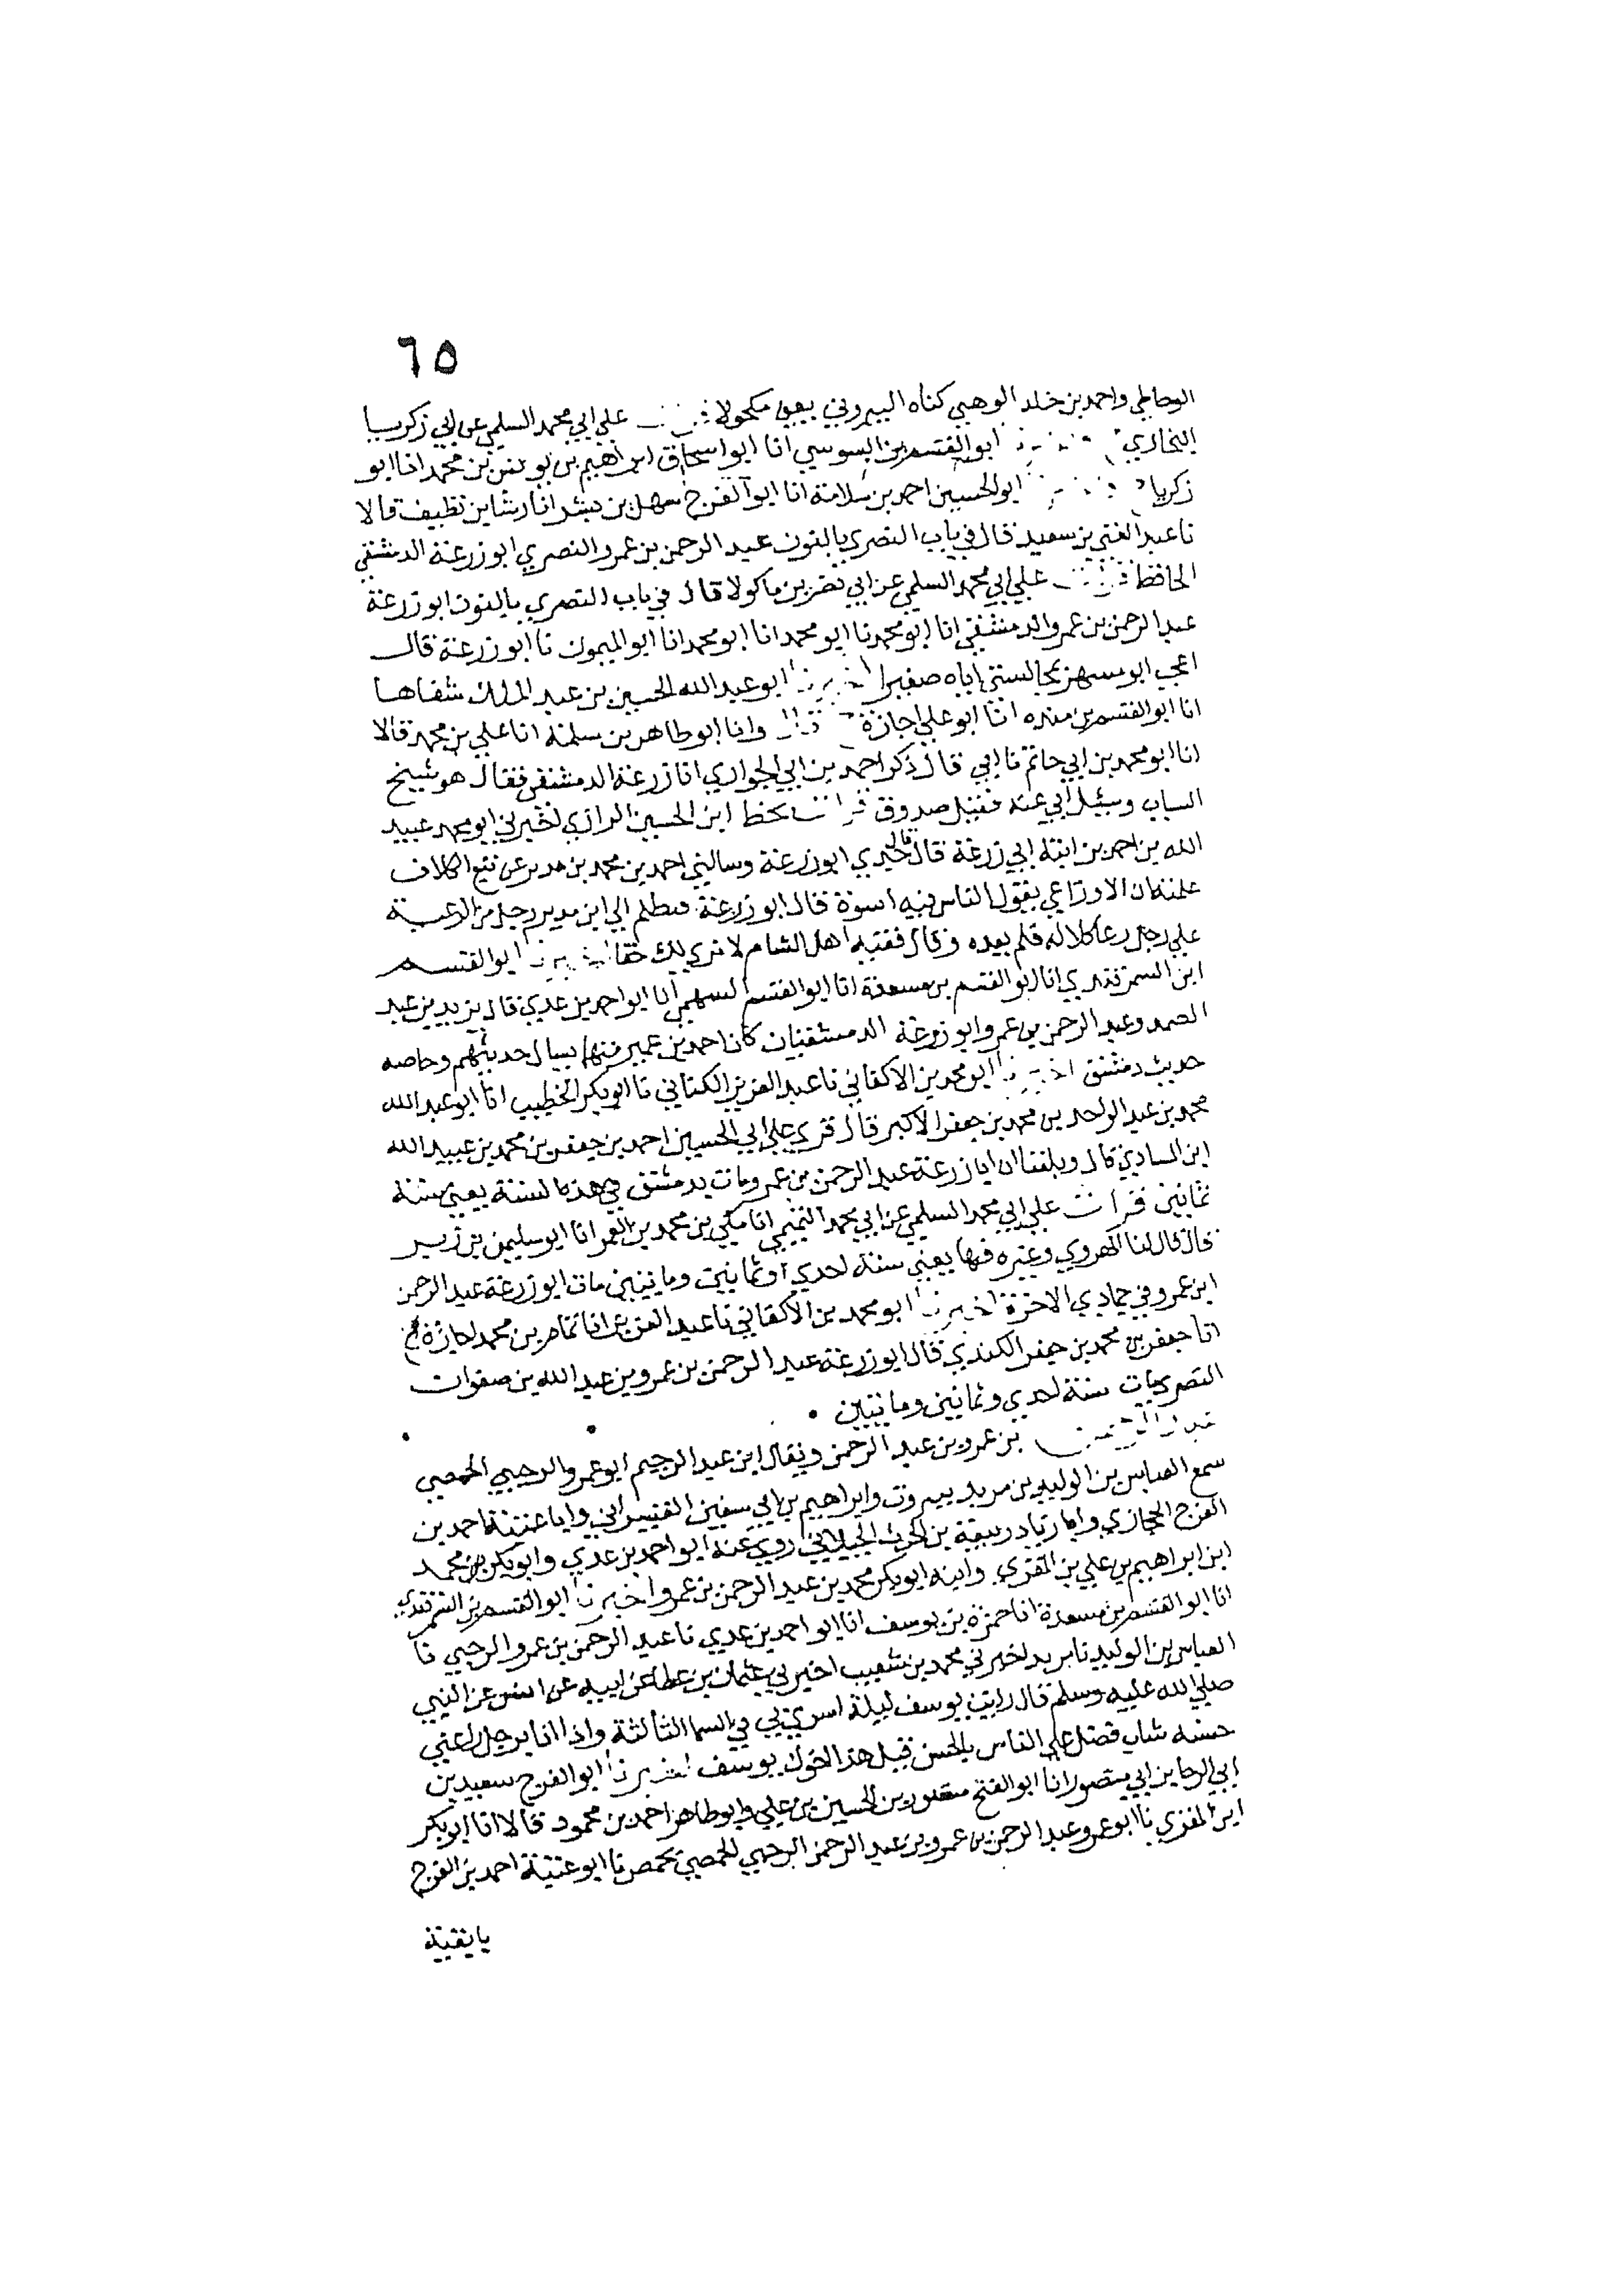 ٦٥
الوحاظي واحمد بن خلد الوهبي كناه البيروتي يعني مكحولا قرات علي ابي محمد السلمي عن ابي زكريا
البخاري ح ابو القسم بن السوسي انا ابو اسحاق ابراهيم بن يونس بن محمد انا ابو
زكريا ح ابو الحسين احمد بن سلامة انا ابو الفرج سهل بن بشر انا رشا بن نظيف قالا
نا عبد الغني بن سعيد قال في باب النصري بالنون عبد الرحمن بن عمرو النصري ابو زرعة الدمشقي
الحافظ قرات علي ابي محمد السلمي عن ابي نصر بن ماكولا قال في باب النصري بالنون ابو زرعة
عبد الرحمن بن عمرو الدمشقي انا ابو محمد نا ابو محمد انا ابو محمد انا ابو الميمون نا ابو زرعة قال
اعجب ابو مسهر بمجالستي اياه صغيرا اخبرنا ابو عبد الله الحسين بن عبد الملك شفاها
انا ابو القسم بن منده انا ابو علي اجازة ح قال وانا ابو طاهر بن سلمة انا علي بن محمد قالا
انا ابو محمد بن ابي حاتم نا ابي قال ذكر احمد بن ابي الحواري ابا زرعة الدمشقي فقال هو شيخ
الساب وسئل ابي عنه فقيل صدوق قرات بخط ابن الحسين الرازي اخبرني ابو محمد عبيد
الله بن احمد بن ابنة ابي زرعة قال قال جدي ابو زرعة وسالني احمد بن محمد بن مدبر عن
علمته ان الاوزاعي يقول الناس فيه اسوة قال ابو زرعة فتظلم الي ابن مدير رجل من الرعية
علي رجل رعا كلا له فلم يعده وقال فقيه اهل الشام لا نري لك حقا اخبرنا ابو القسم
ابن السمرقندي انا ابو القسم بن مسعدة انا ابو القسم السهمي انا ابو احمد بن عدي قال يزيد بن عبد
الصمد وعبد الرحمن بن عمرو ابو زرعة الدمشقيان كان احمد بن عمير يسال حديثهم وخاصه
حديث دمشق اخبرنا ابو محمد بن الاكفاني نا عبد العزيز الكتاني نا ابو بكر الخطيب انا ابو عبد الله
محمد بن عبد الواحد بن محمد بن جعفر الاكبر قال قري علي ابي الحسين احمد بن جعفر بن محمد بن عبيد الله
ابن السادي قال وبلغنا ان ابا زرعة عبد الرحمن بن عمرو مات بدمشق في هذه السنة يعني سنة
ثمانين قرات علي ابي محمد السلمي عن ابي محمد التميمي انا مكي بن محمد بن الغمر انا ابو سليمن بن زبر
قال قال لنا الهروي وغيره فيها يعني سنة احدي وثمانين ومايتين مات ابو زرعة عبد الرحمن
ابن عمرو في جمادي الاخرة اخبرنا ابو محمد بن الاكفاني نا عبد العزيز انا تمام بن محمد اجازة
انا جعفر بن محمد بن جعفر الكندي قال ابو زرعة عبد الرحمن بن عمرو بن عبد الله بن صفوان
النصري مات سنة احدي وثمانين ومايتين
عبد الرحمن بن عمرو بن عبد الرحمن ويقال ابن عبد الرحيم ابو عمرو الرحبي الحمصي
سمع العباس بن الوليد بن مزيد ببيروت وابراهيم بن ابي سفين القيسراني وابا عتبة احمد بن
الفرج الحجازي وابا زياد ربيعة بن الحرث الجبلاني روي عنه ابو احمد بن عدي وابو بكر بن محمد
ابن ابراهيم بن علي بن المقري وابنه ابو بكر محمد بن عبد الرحمن بن عمرو اخبرنا ابو القسم بن السمرقندي
انا ابو القسم بن مسعدة انا حمزة بن يوسف انا ابو احمد بن عدي نا عبد الرحمن بن عمرو الرحبي نا
العباس بن الوليد نا مزيد اخبرني محمد بن شعيب اخبرني عثمان بن عطا عن ابيه عن انس عن النبي
صلي الله عليه وسلم قال رايت يوسف ليلة اسري بي في السما الثالثة واذا انا برجل راعني
حسنه شاب فضل علي الناس بالحسن قيل هذا اخوك يوسف اخبرنا ابو الفرج سعيد بن
ابي الرجا بن ابي منصور انا ابو الفتح منصور بن الحسين بن علي وابو طاهر احمد بن محمود قالا انا ابو بكر
ابن المقري نا ابو عمرو عبد الرحمن بن عمرو بن عبد الرحمن الرحبي الحمصي بحمص نا ابو عتبة احمد بن الفرج
يا بقية